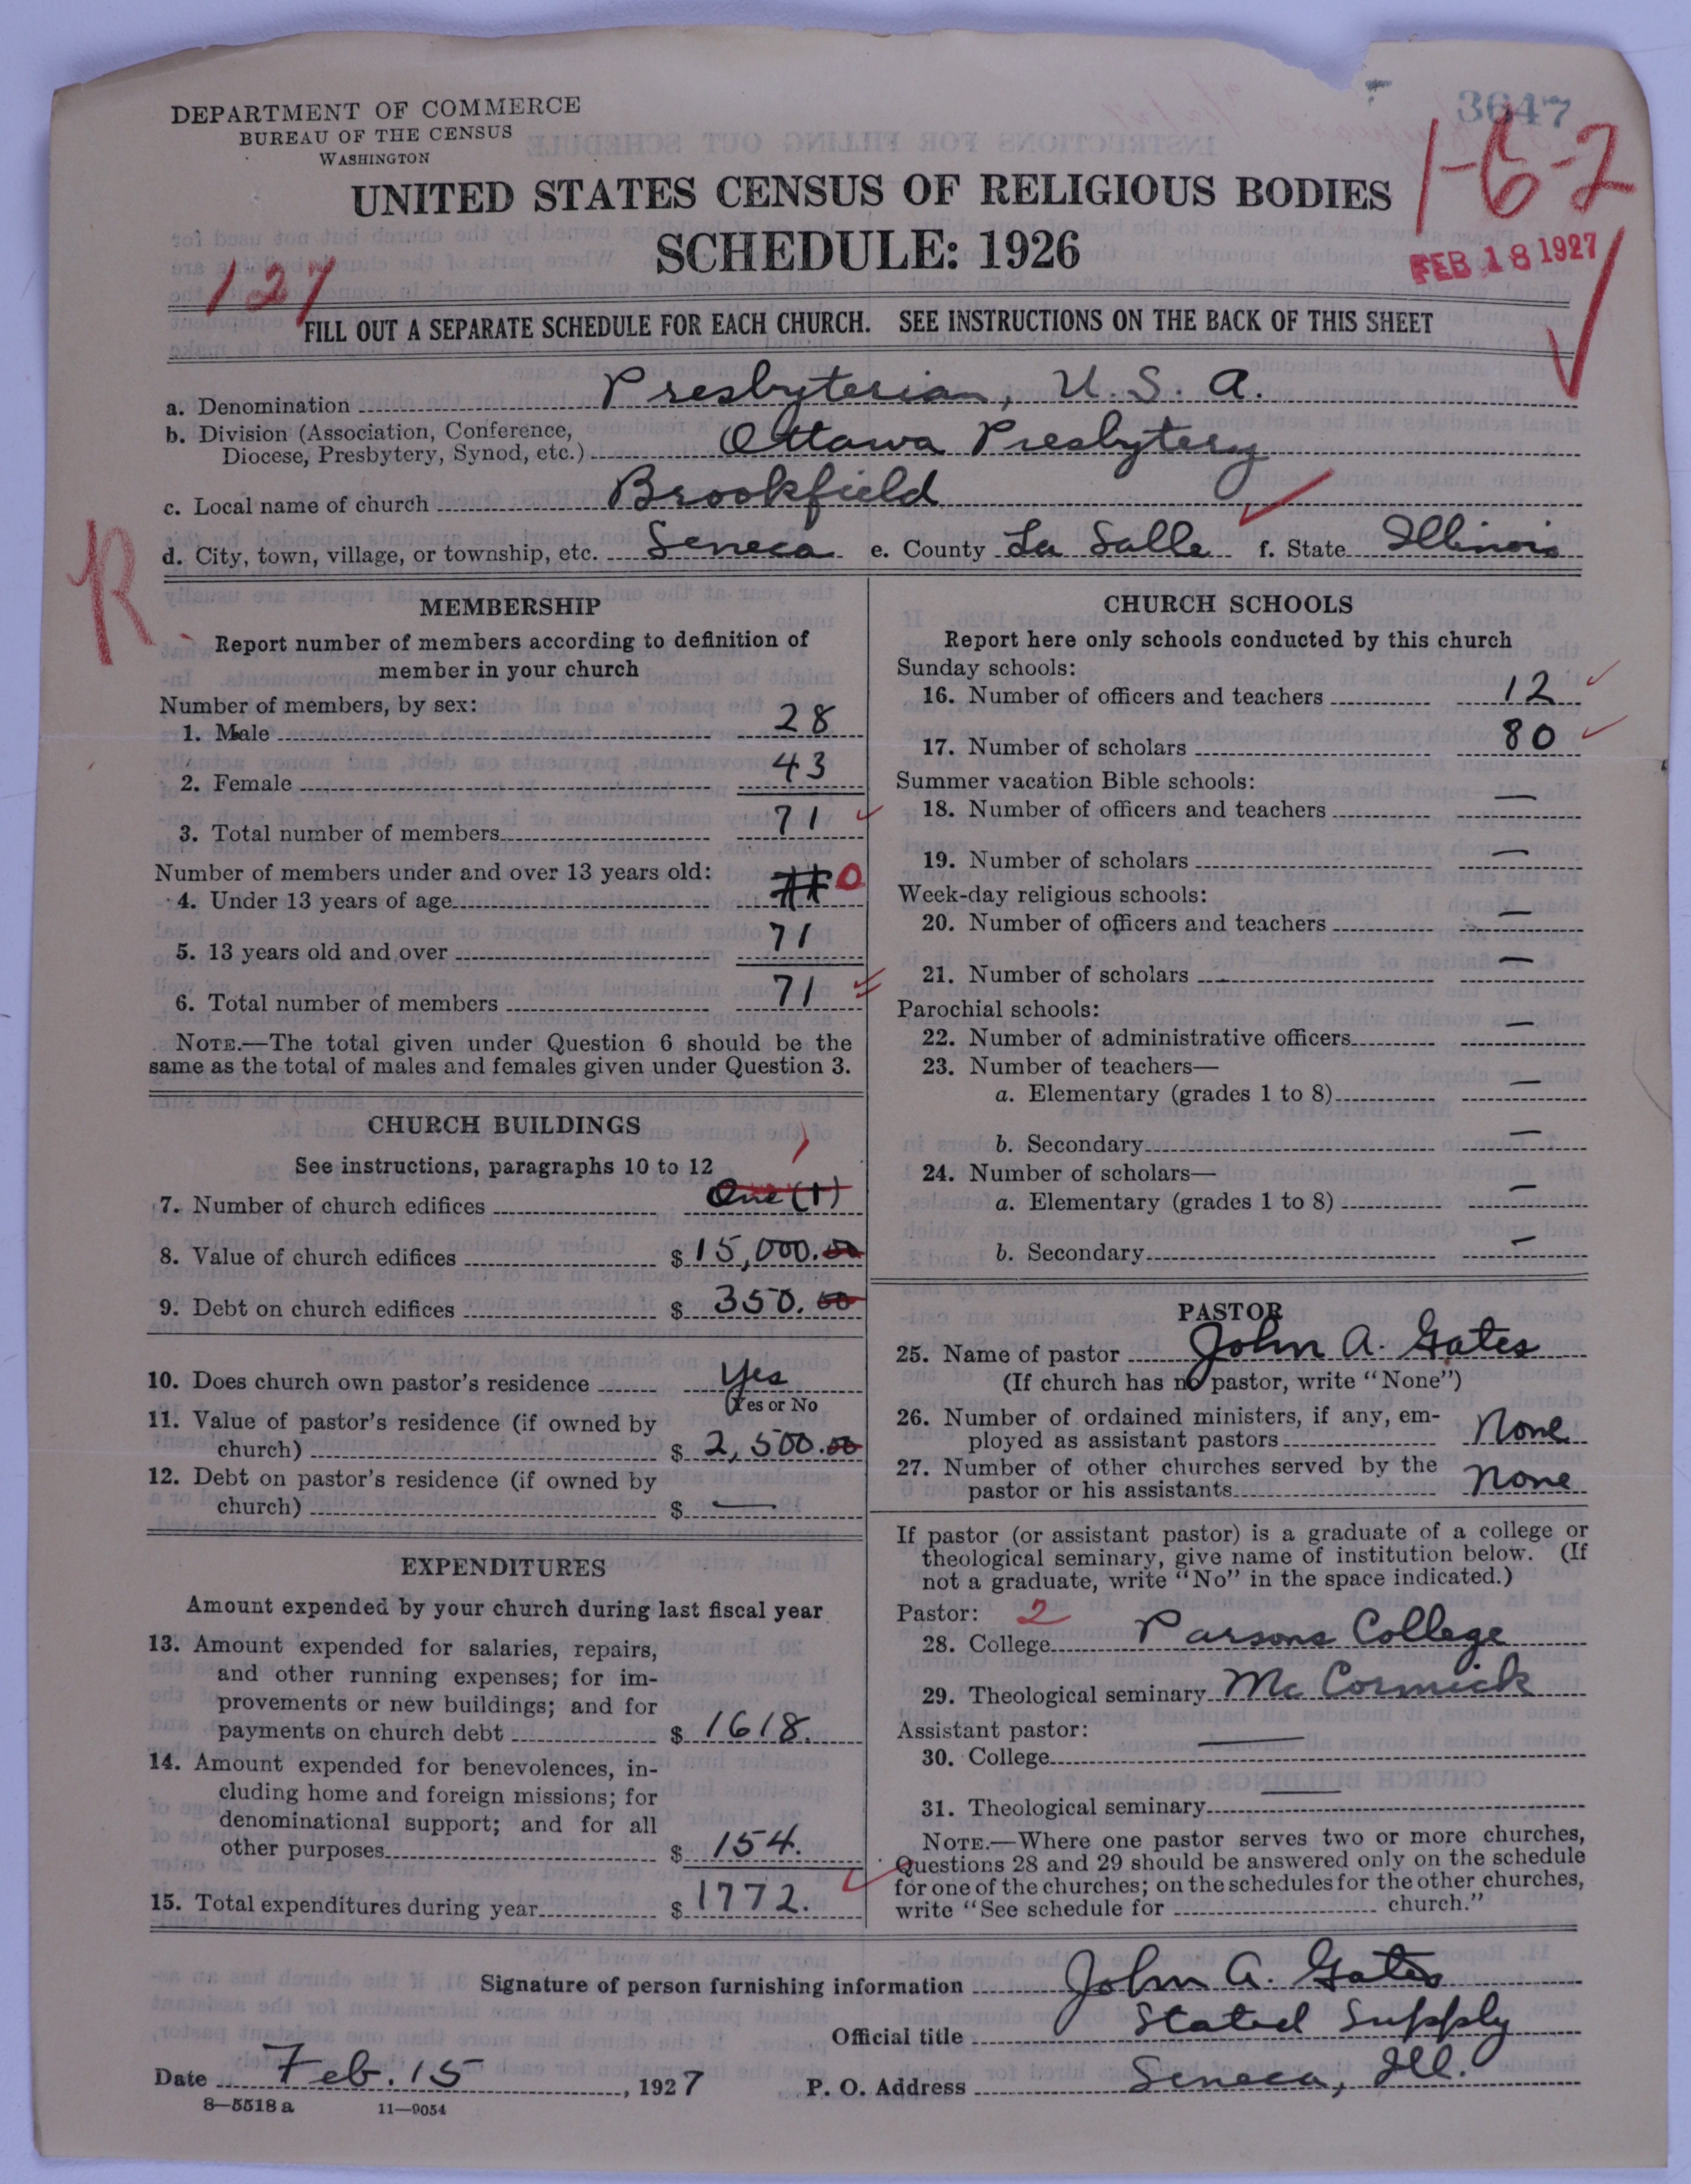 DEPARTMENT OF COMMERCE
BUREAU OF THE CENSUS
WASHINGTON
3647
1-6-2
UNITED STATES CENSUS OF RELIGIOUS BODIES
SCHEDULE: 1926
FEB 18 1927
127
FILL OUT A SEPARATE SCHEDULE FOR EACH CHURCH. SEE INSTRUCTIONS ON THE BACK OF THIS SHEET
a. Denomination Presbyterian, U. S. A.
b. Division (Association, Conference,
Diocese, Presbytery, Synod, etc.) Ottawa Presbytery
c. Local name of church Brookfield
d. City, town, village, or township, etc. Seneca e. County La Salle f. State Illinois
R
MEMBERSHIP
Report number of members according to definition of
member in your church
Number of members, by sex:
1. Male 28
2. Female 43
3. Total number of members 71
Number of members under and over 13 years old:
4. Under 13 years of age 0
5. 13 years old and over 71
6. Total number of members 71
NOTE.—The total given under Question 6 should be the
same as the total of males and females given under Question 3.
CHURCH BUILDINGS
See instructions, paragraphs 10 to 12
1
7. Number of church edifices One (1)
8. Value of church edifices $ 15,000.00
9. Debt on church edifices $ 350.00
10. Does church own pastor's residence Yes
(Yes or No
11. Value of pastor's residence (if owned by
church) $ 2,500.00
12. Debt on pastor's residence (if owned by
church) $ —
EXPENDITURES
Amount expended by your church during last fiscal year
13. Amount expended for salaries, repairs,
and other running expenses; for im-
provements or new buildings; and for
payments on church debt $ 1618.
14. Amount expended for benevolences, in-
cluding home and foreign missions; for
denominational support; and for all
other purposes $ 154.
15. Total expenditures during year $ 1772.
CHURCH SCHOOLS
Report here only schools conducted by this church
Sunday schools:
16. Number of officers and teachers 12
17. Number of scholars 80
Summer vacation Bible schools:
18. Number of officers and teachers —
19. Number of scholars —
Week-day religious schools:
20. Number of officers and teachers —
21. Number of scholars —
Parochial schools:
22. Number of administrative officers —
23. Number of teachers—
a. Elementary (grades 1 to 8) —
b. Secondary —
24. Number of scholars—
a. Elementary (grades 1 to 8) —
b. Secondary —
PASTOR
25. Name of pastor John A. Gates
(If church has no pastor, write "None")
26. Number of ordained ministers, if any, em-
ployed as assistant pastors None
27. Number of other churches served by the
pastor or his assistants None
If pastor (or assistant pastor) is a graduate of a college or
theological seminary, give name of institution below. (If
not a graduate, write "No" in the space indicated.)
Pastor: 2
28. College Parsons College
29. Theological seminary McCormick
Assistant pastor:
30. College —
31. Theological seminary —
NOTE.—Where one pastor serves two or more churches,
Questions 28 and 29 should be answered only on the schedule
for one of the churches; on the schedules for the other churches,
write "See schedule for church."
Signature of person furnishing information John A. Gates
Official title Stated Supply
Date Feb. 15, 1927 P. O. Address Seneca, Ill.
8—5518 a 11—9054